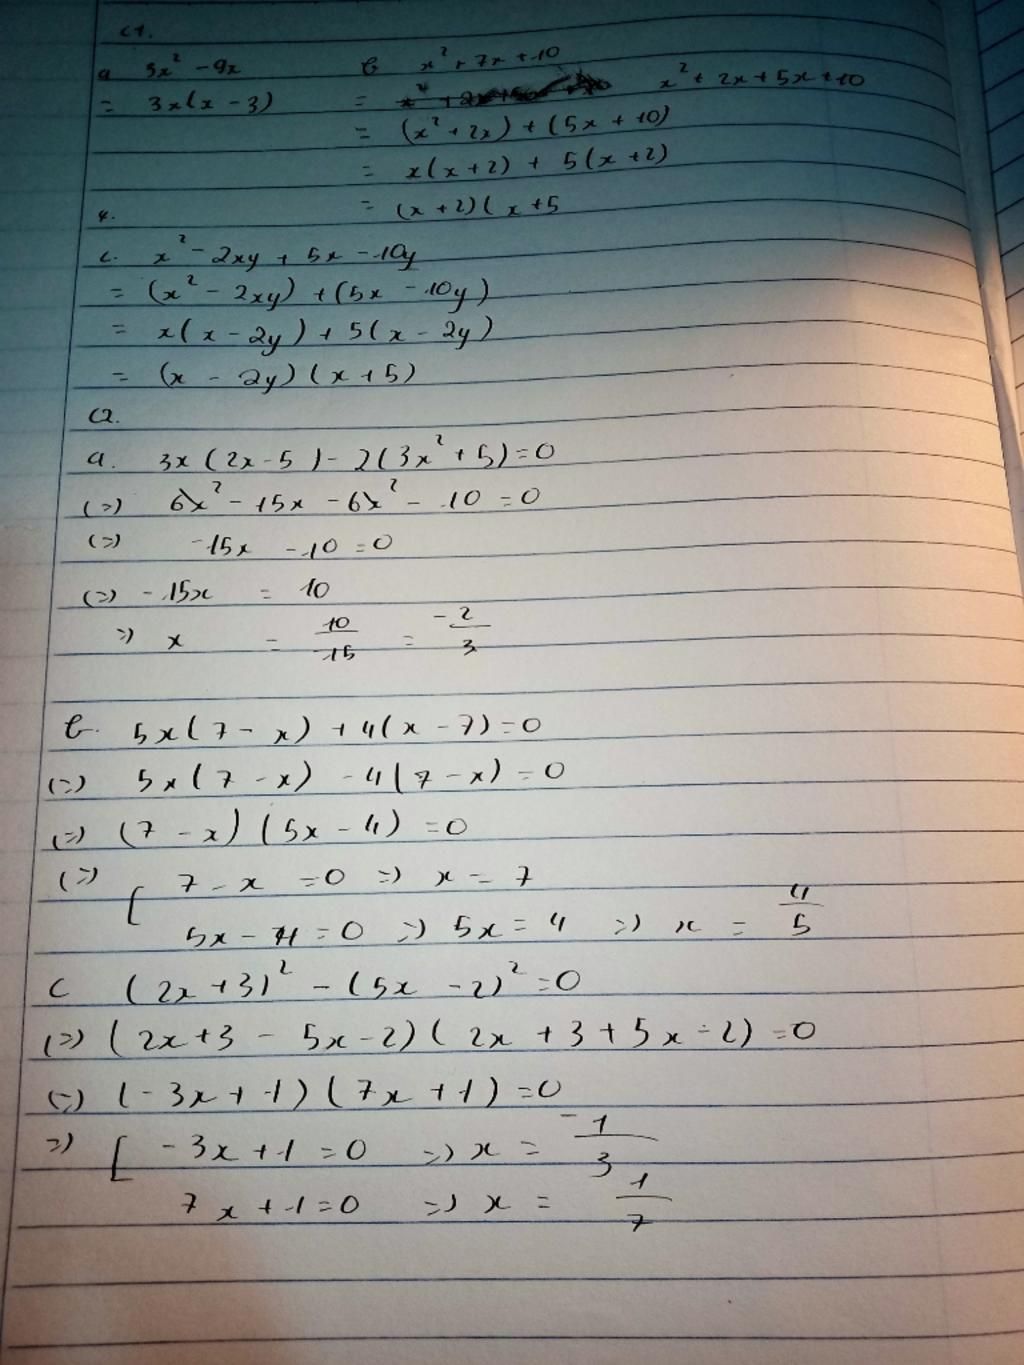 C1.
a 3x² - 9x
= 3x(x - 3)
b x² + 7x + 10
= x² + 2x + 5x + 10
= (x² + 2x) + (5x + 10)
= x(x + 2) + 5(x + 2)
= (x + 2)(x + 5
c. x² - 2xy + 5x - 10y
= (x² - 2xy) + (5x - 10y)
= x(x - 2y) + 5(x - 2y)
= (x - 2y)(x + 5)
C2.
a. 3x(2x - 5) - 2(3x² + 5) = 0
(=) 6x² - 15x - 6x² - 10 = 0
(=) -15x - 10 = 0
(=) -15x = 10
=) x = 10/15 = -2/3
b. 5x(7 - x) + 4(x - 7) = 0
(=) 5x(7 - x) - 4(7 - x) = 0
(=) (7 - x)(5x - 4) = 0
(=) [ 7 - x = 0 =) x = 7
5x - 4 = 0 =) 5x = 4 =) x = 4/5
c (2x + 3)² - (5x - 2)² = 0
(=) (2x + 3 - 5x - 2)(2x + 3 + 5x - 2) = 0
(=) (-3x + 1)(7x + 1) = 0
=) [ -3x + 1 = 0 =) x = -1/3
7x + 1 = 0 =) x = 1/7